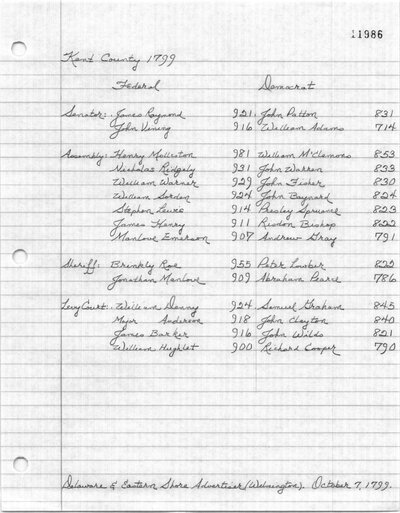 11986
Kent County 1799
Federal Democrat
Senator: James Raymond 921 John Patton 831
John Vining 916 William Adams 714
Assembly: Henry Molleston 981 William McClemons 853
Nicholas Ridgely 931 John Warren 833
William Warner 929 John Fisher 830
William Sorden 924 John Baynard 824
Stephen Lewis 914 Presley Spruance 823
James Henry 911 Risdon Bishop 822
Manlove Emerson 907 Andrew Gray 791
Sheriff: Brinkly Roe 955 Peter Lowber 822
Jonathan Manlove 909 Abraham Pearce 786
Levy Court: William Denny 924 Samuel Graham 845
Major Anderson 918 John Clayton 840
James Barker 916 John Wilds 821
William Hughlet 900 Richard Cooper 790
Delaware & Eastern Shore Advertiser (Wilmington). October 7, 1799.